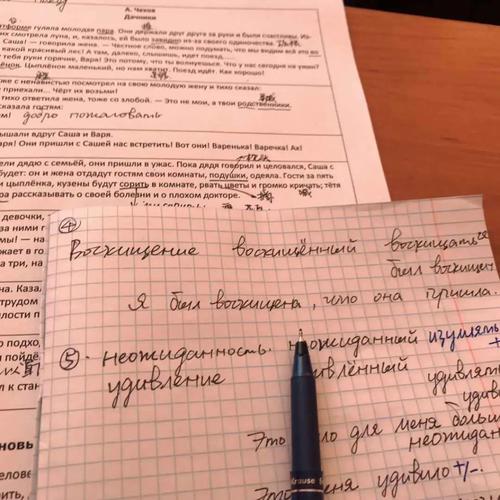 А. Чехов
Дачники
тформе гуляла молодая пара. Они держали друг друга за руки и были счастливы. Из-
их смотрела луна, и, казалось, ей было завидно из-за своего одиночества.
Саша! — говорила жена. — Честное слово, можно подумать, что мы видим всё это во
какой красивый лес! А там, далеко, слышишь, идёт поезд...
тебя руки горячие, Варя! Это потому, что ты волнуешься. Что у нас сегодня на ужин?
Цыплёнок маленький, но нам хватит. Поезд идёт. Как хорошо!
оже с ненавистью посмотрел на свою молодую жену и тихо сказал:
приехали... Чёрт их возьми!
тихо ответила жена, тоже со злобой. — Это не мои, а твои родственники.
сказала гостям:
м! добро пожаловать
ышали вдруг Саша и Варя.
аря! Они приехали с Сашей нас встретить! Вот они! Варенька! Варечка! Ах!
ели дядю с семьёй, они пришли в ужас. Пока дядя говорил и целовался, Саша с
будет: он и жена отдадут гостям свои комнаты, подушки, одеяла. Гости за пять
и цыплёнка, кузены будут сорить в комнате, рвать цветы и громко кричать; тётя
ра рассказывать о своей болезни и о плохом докторе.
девочки,
за ними г
мы! — на
жает в го
а три, на
на. Каза
трудом
илости п
о подхо
и пойдё
л к стан
новь
еловe
сить,
④
Восхищение восхищённый восхищаться
был восхищен
Я был восхищена, что она пришла.
⑤ неожиданность неожиданный изумлять
удивление влённый удивлять
Это ло для меня больш
неожидан
Это меня удивило +/-.
Krause